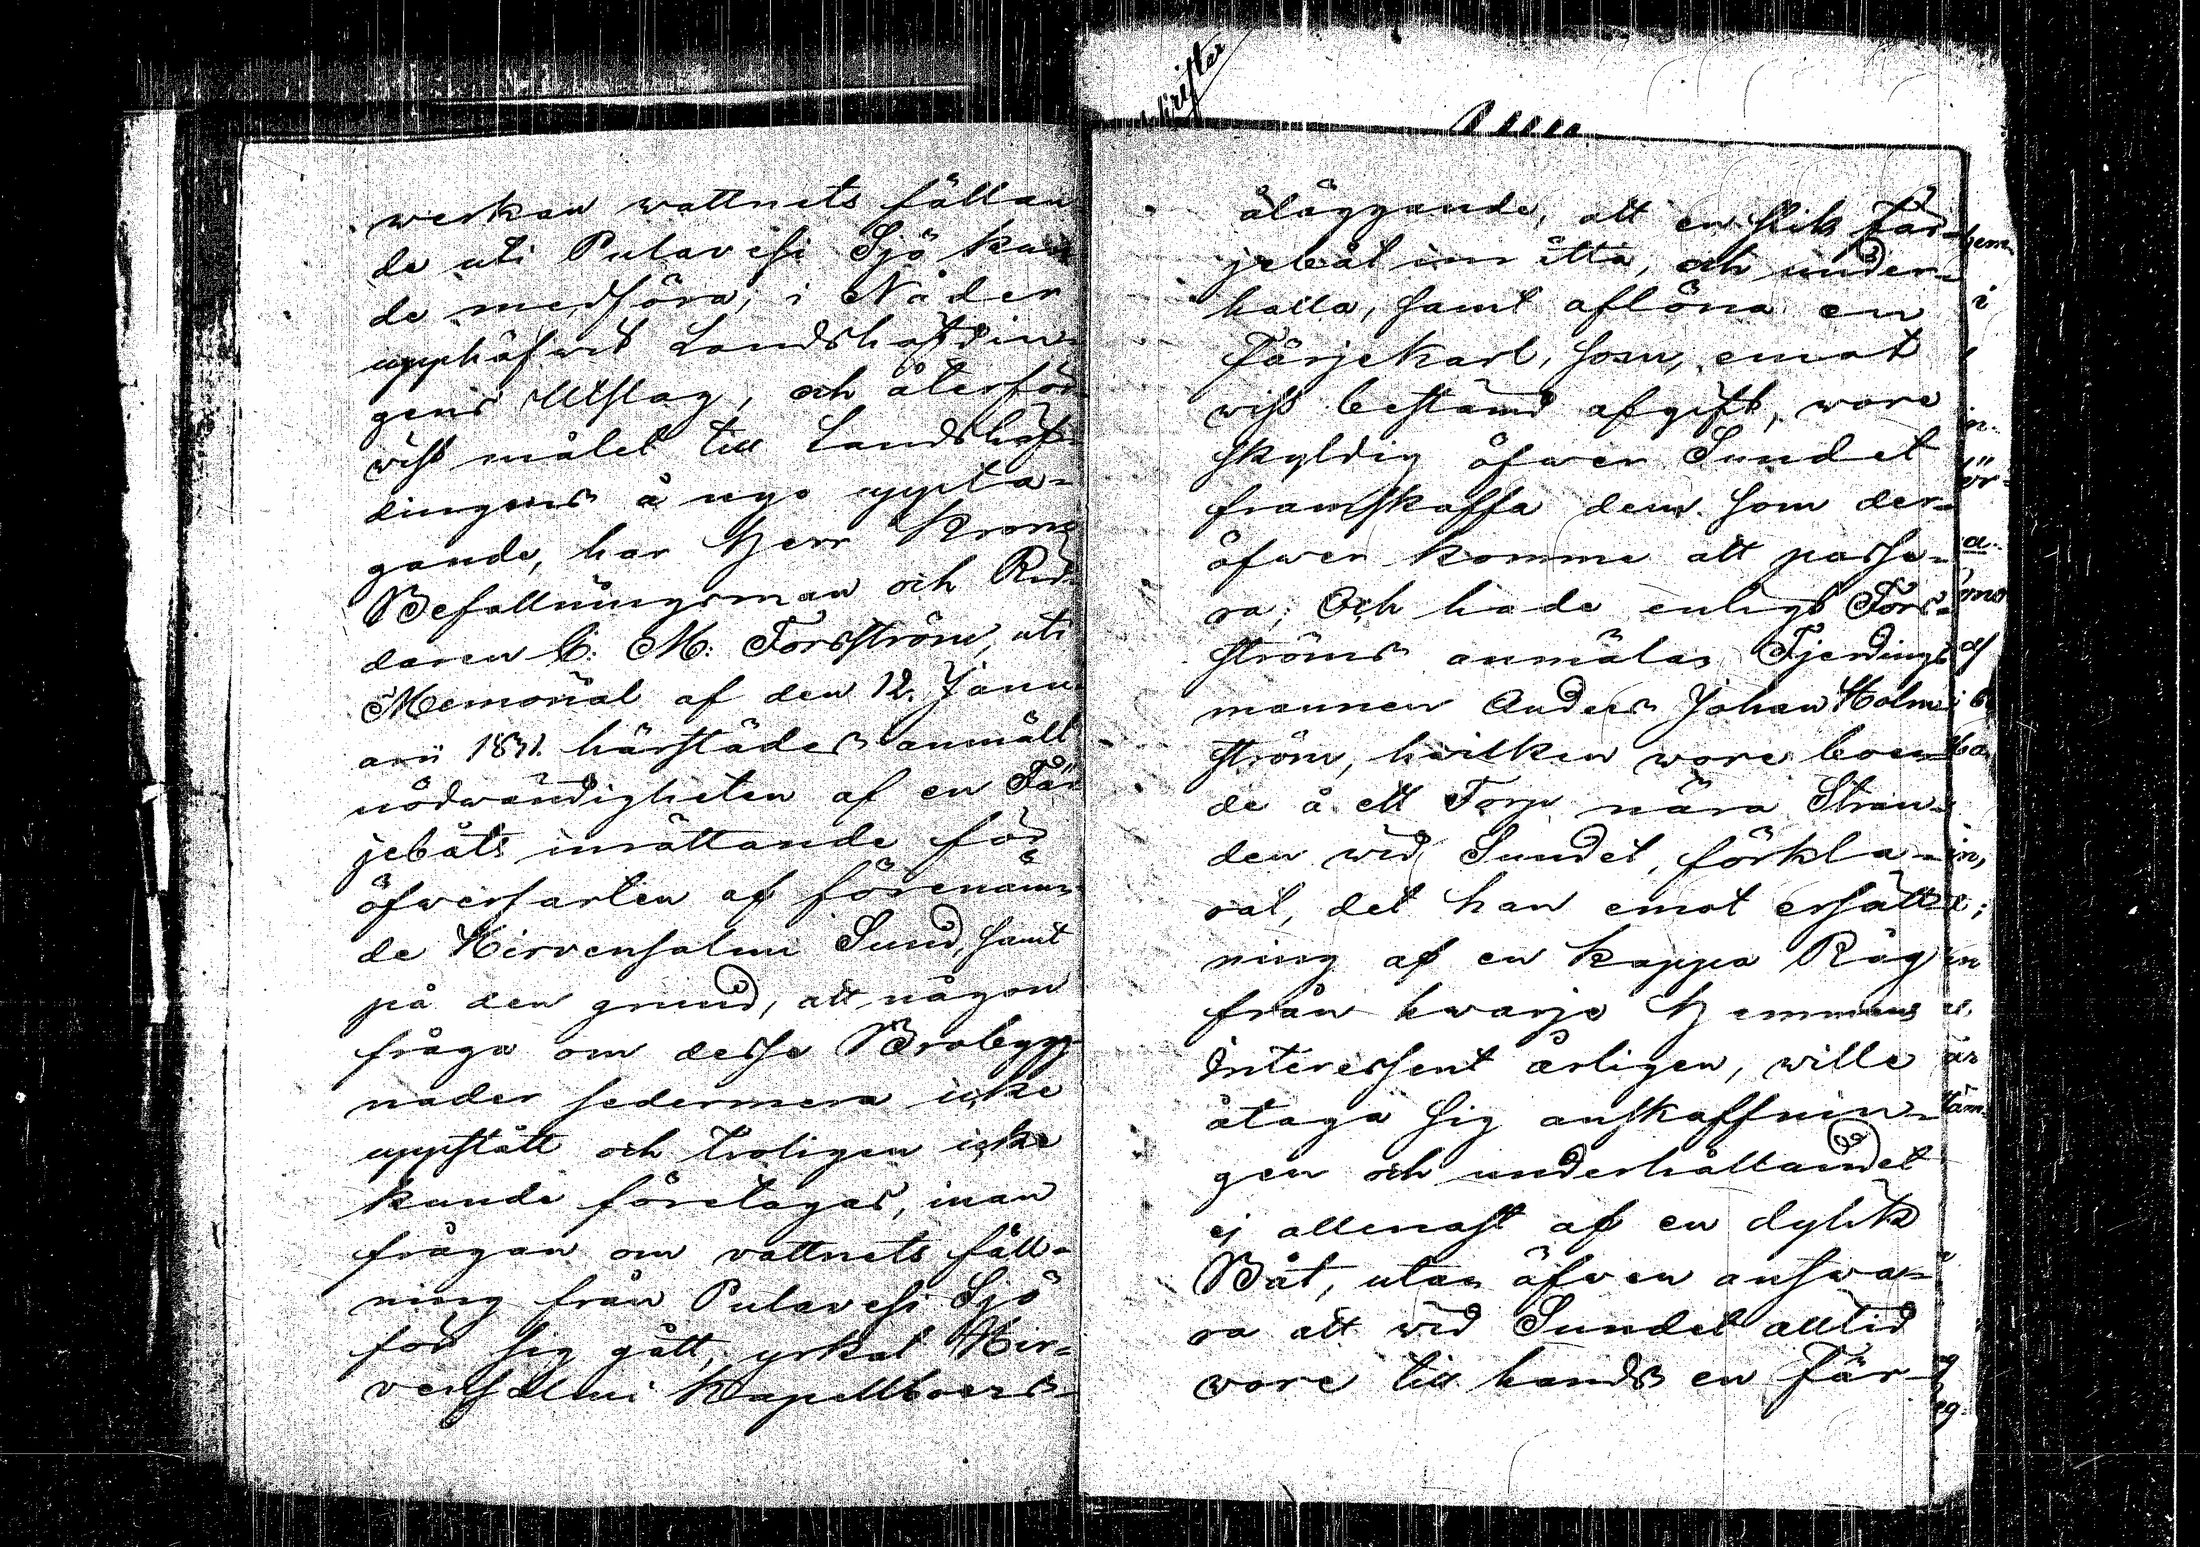 werkan wattnets fällan
de uti Pulavesi Sjö kun
de medföra, i Nåder
upphäfwit Landshöfdin-
gens Utslag, och återför
vist målet till Landshöf-
dingens å nyo uppta-
gande, har Herr Krono
Befallningsman och Rid-
daren C. M. Forsström, uti
Memorial af den 12. Janu-
arii 1831. härstädes anmält
nödwändigheten af en Fär
jebåts inrättande för
öfwerfarten af förenämn-
de Hirvensalmi Sund, samt
på den grund, att någon
fråga om desse Brobygg-
nader sedermera icke
uppstått och troligen icke
kunde företagas, innan
frågan om vattnets fäll-
ning från Pulavesi Sjö
för sig gått, yrkat Hir-
vensalmi Kapellboers
åläggande, att en slik Fär-
jebåt inrätta, och under-
hålla, samt aflöna en
Färjekarl, som, emot
viss bestämd afgift, wore
skyldig öfwer Sundet
framskaffa dem som der-
öfwer komme att passe-
ra; Och hade enligt Fors-
ströms anmälan Fjerdings
mannen Anders Johan Holm-
ström, hwilken wore boen-
de å ett Torp nära Stran-
den wid Sundet, förkla-
rat, det han emot ersätt-
ning af en kappa Råg
från hwarje Hemmans
Interessent årligen, wille
åtaga sig anskaffnin-
gen och underhållandet
ej allenast af en dylik
Båt, utan äfwen answa-
ra att wid Sundet alltid
wore till hands en Fär-